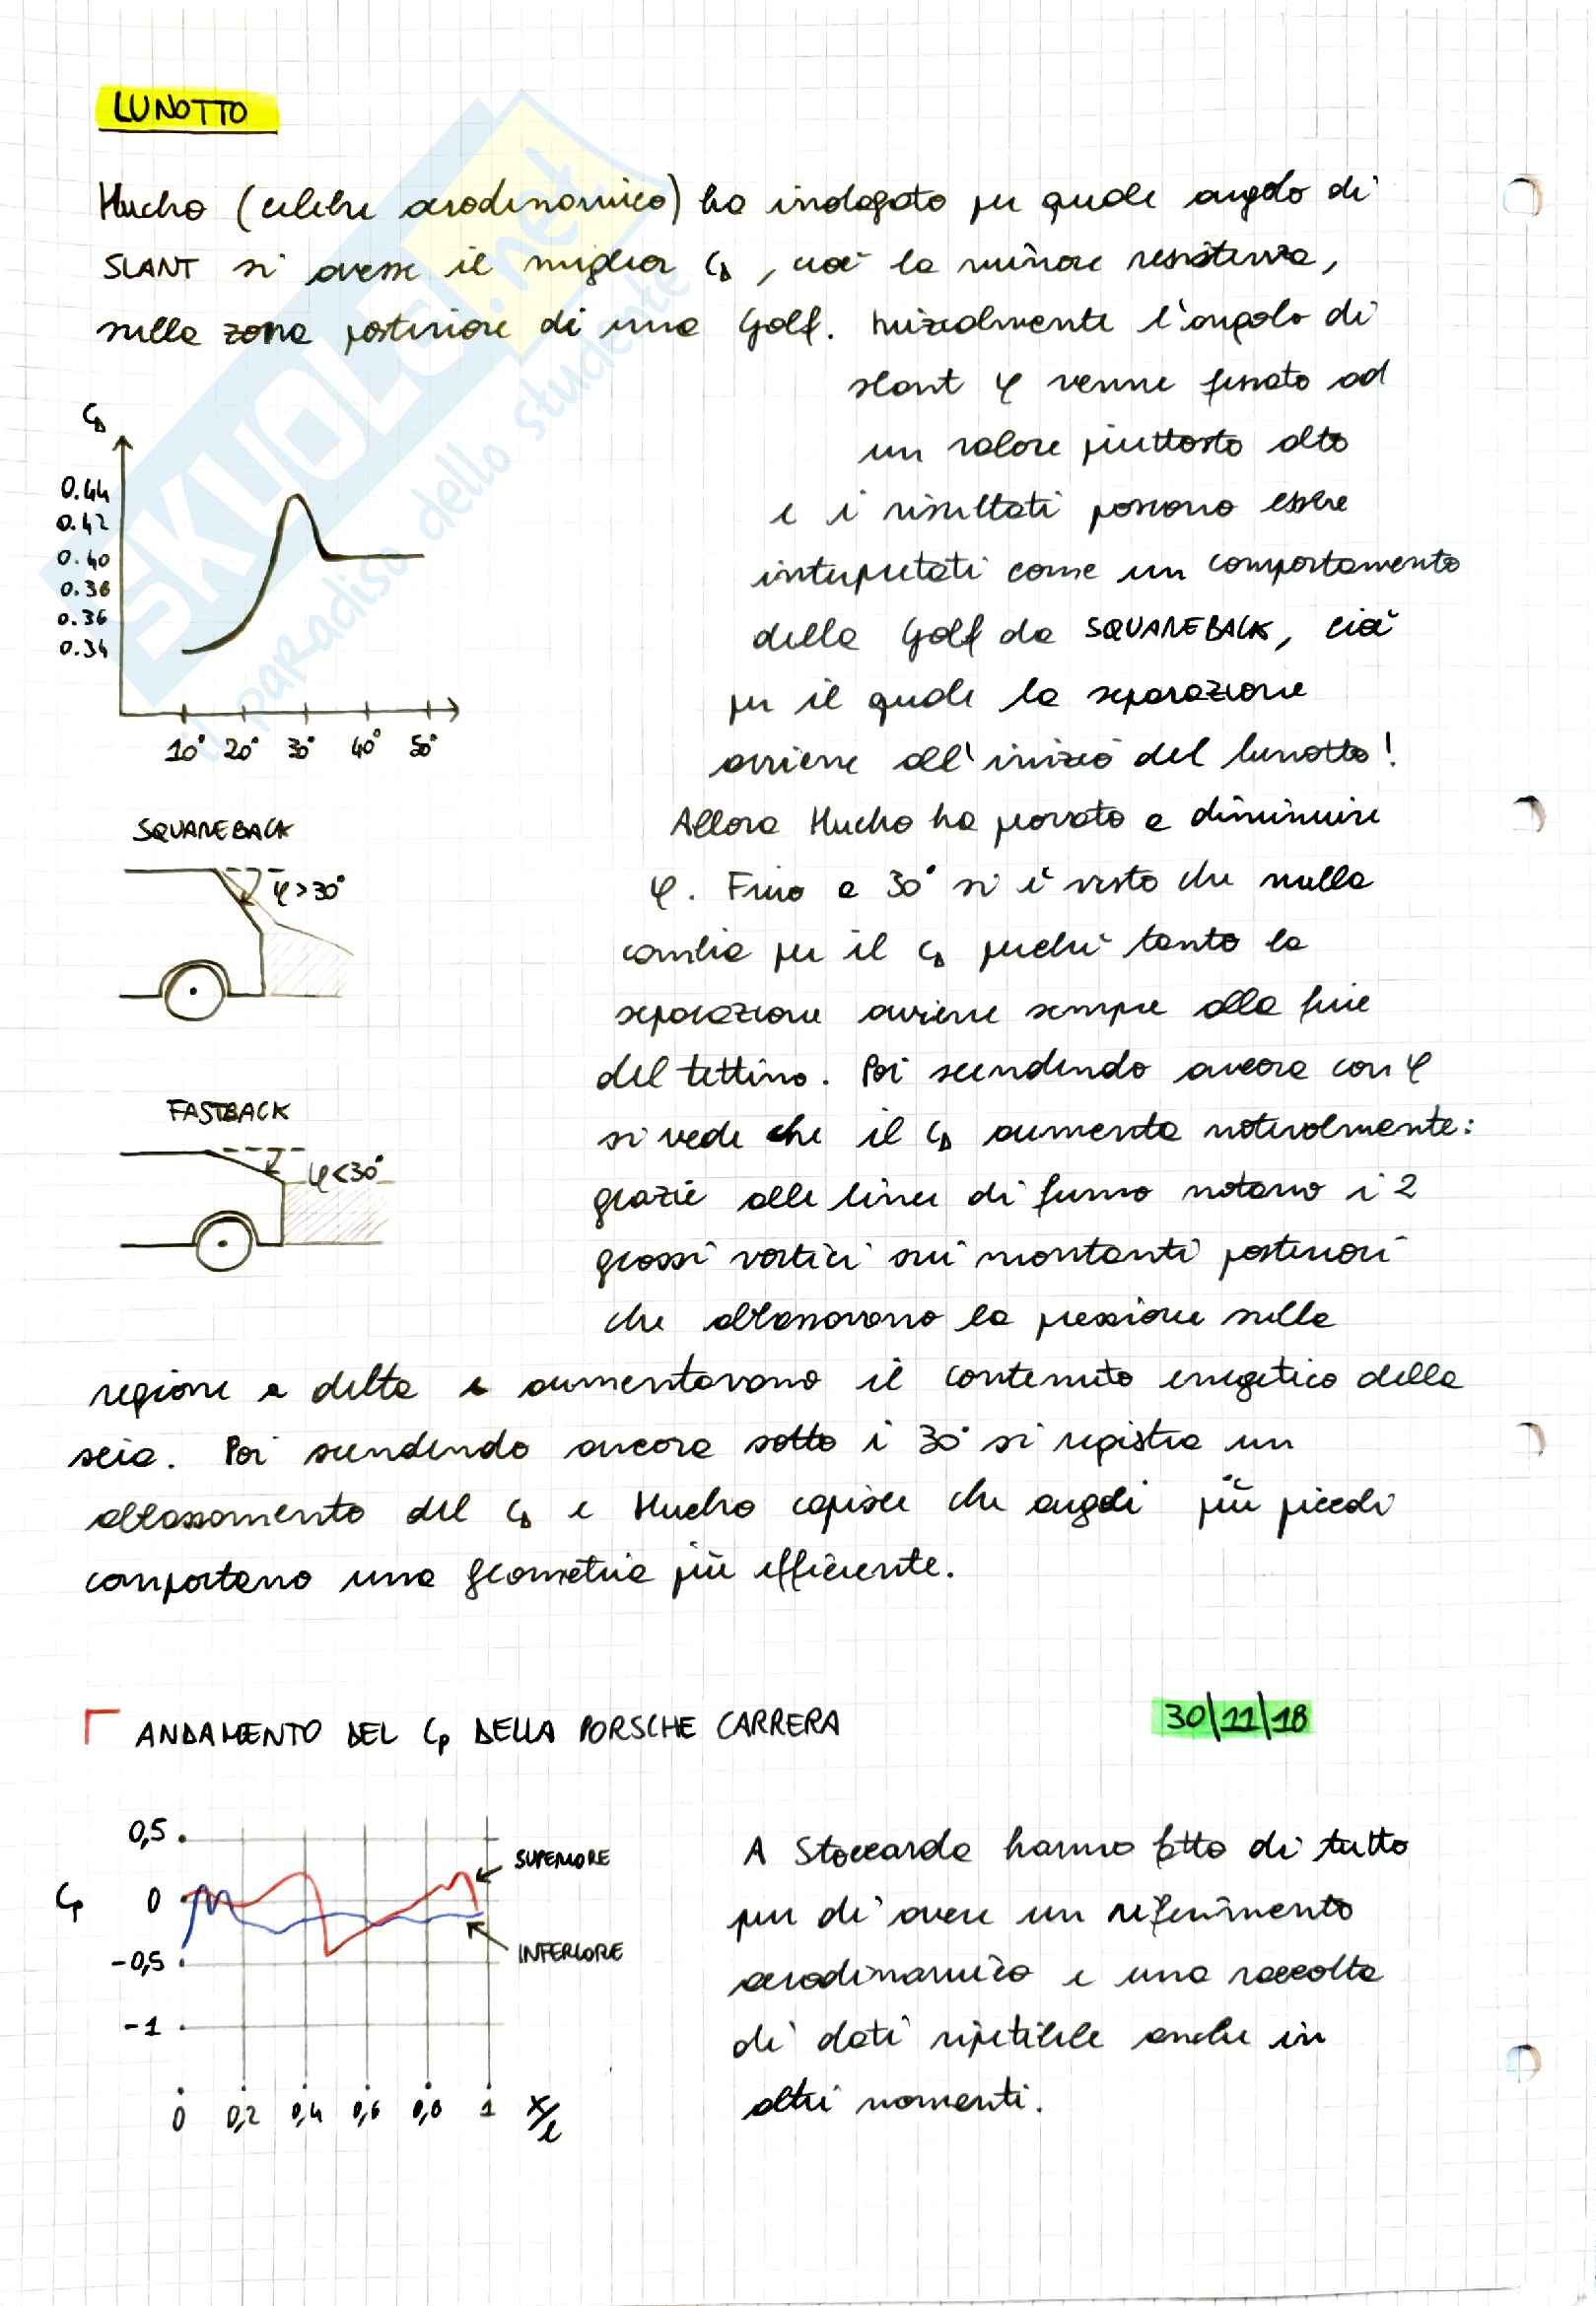 LUNOTTO
Hucho (celebre aerodinamico) ha indagato per quale angolo di
SLANT si avesse il miglior CD, cioè la minore resistenza,
sulla zona posteriore di una Golf. Inizialmente l'angolo di
slant φ venne fissato ad
un valore piuttosto alto
e i risultati possono essere
interpretati come un comportamento
della Golf da SQUAREBACK, cioè
per il quale la separazione
avviene all'inizio del lunotto!
Allora Hucho ha provato a diminuire
φ. Fino a 30° si è visto che nulla
cambia per il CD perché tanto la
separazione avviene sempre alla fine
del tettino. Poi scendendo ancora con φ
si vede che il CD aumenta notevolmente:
grazie alle linee di fumo notano i 2
grossi vortici sui montanti posteriori
che abbassavano la pressione sulla
regione a delta e aumentavano il contenuto energetico della
scia. Poi scendendo ancora sotto i 30° si registra un
abbassamento del CD e Hucho capisce che angoli più piccoli
comportano una geometria più efficiente.
CD
0.44
0.42
0.40
0.38
0.36
0.34
10° 20° 30° 40° 50°
SQUAREBACK
φ>30°
FASTBACK
φ<30°
ANDAMENTO DEL Cp DELLA PORSCHE CARRERA
30/11/18
0,5
Cp 0
-0,5
-1
0 0,2 0,4 0,6 0,8 1 x/l
SUPERIORE
INFERIORE
A Stoccarda hanno fatto di tutto
pur di avere un riferimento
aerodinamico e una raccolta
di dati ripetibile anche in
altri momenti.
SKUOLA.net
il paradiso dello studente